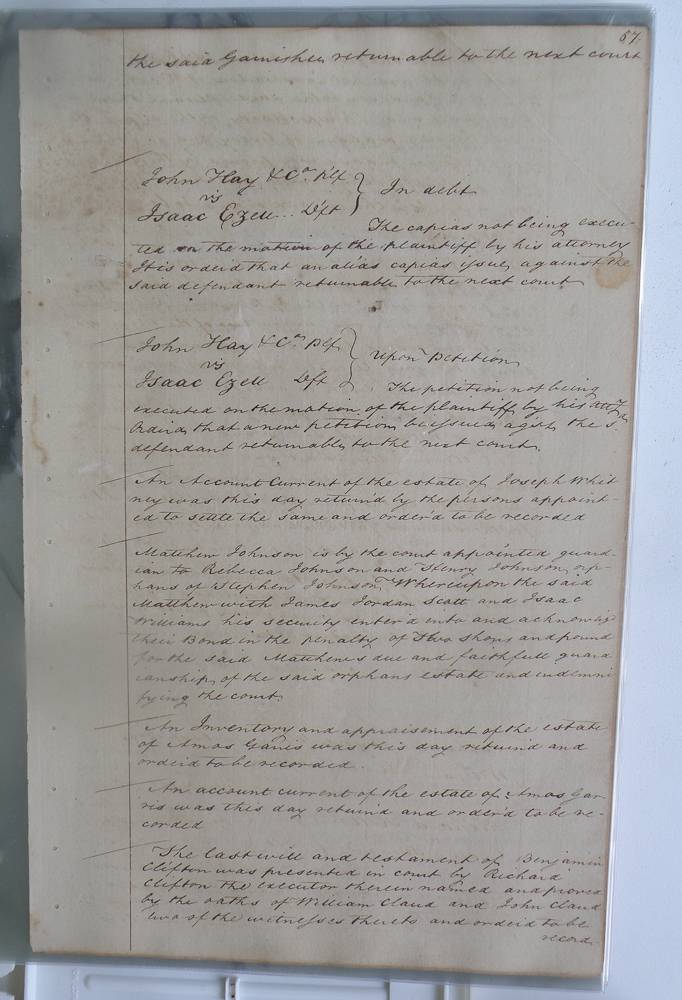 57.
the said Garnishee returnable to the next court
John Hay & Co. Plt
vs
Isaac Ezell .. Dft
In debt
The capias not being execu-
ted on the motion of the plaintiff by his attorney
It is order'd that an alias capias issue against the
said defendant returnable to the next court
John Hay & Co. Plt
vs
Isaac Ezell Dft
Upon Petition
The petition not being
executed on the motion of the plaintiff by his atto.
Order'd that a new petition be issued agst. the sd.
defendant returnable to the next court.
An Account Current of the estate of Joseph Whit
ney was this day return'd by the persons appoint-
ed to settle the same and order'd to be recorded
Matthew Johnson is by the court appointed guard-
ian to Rebecca Johnson and Henry Johnson orp-
hans of Stephen Johnson, Whereupon the said
Matthew with James Jordan Scott and Isaac
Williams his security enter'd into and acknowlg'd
their Bond in the penalty of Two thousand pound
for the said Matthew's due and faithfull guard
ianship of the said orphans estate and indemni
fying the court.
An Inventory and appraisement of the estate
of Amos Garris was this day return'd and
order'd to be recorded.
An account current of the estate of Amos Gar-
ris was this day return'd and order'd to be re-
corded
The last will and testament of Benjamin
Clifton was presented in court by Richard
Clifton the executor therein named and proved
by the oaths of William Claud and John Claud
two of the witnesses thereto and order'd to be
record